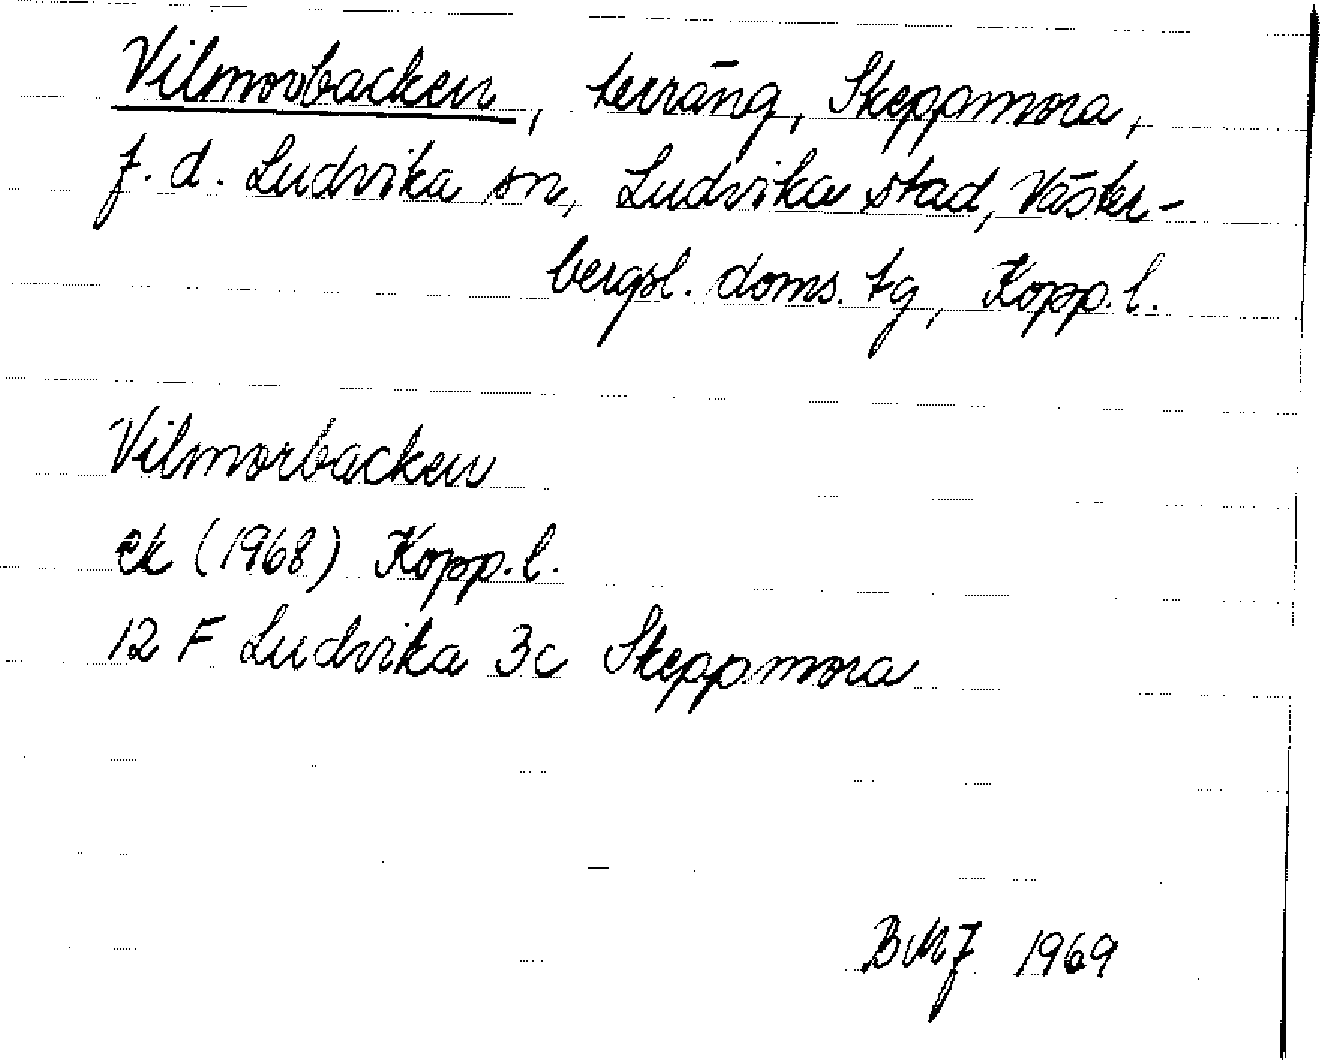 Vilmorbacken, terräng, Skeppmora,
f. d. Ludvika sn, Ludvika stad, Väster-
bergsl. doms. tg, Kopp. l.
Vilmorbacken
ek (1968) Kopp. l.
12 F Ludvika 3c Skeppmora
BMJ 1969